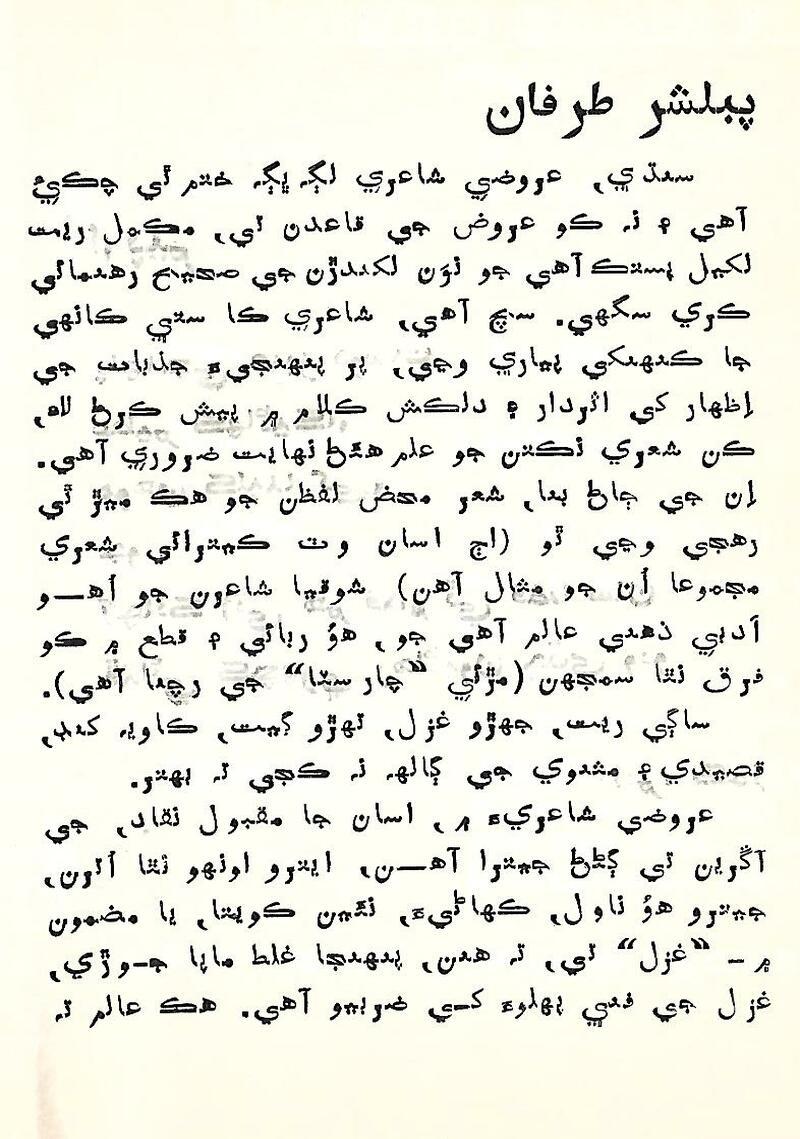 پبلشر طرفان
سنڌي، عروضي شاعري لڳ ڀڳ ختم ٿي چڪيءُ
آهي ۽ نہ ڪو عروض جي قاعدن تي، مڪمل ريت
لکيل پستڪ آهي جو نوَن لکندڙن جي صحيح رهنمائي
ڪري سگهي. سچ آهي، شاعري ڪا ستي ڪانهي
جا ڪنهنکي پياري وڃي، پر پنهنجيءَ جذبات جي
اِظهار کي اثردار ۽ دلڪش ڪلام ۾ پيش ڪرڻ لاءِ،
ڪن شعري نڪتن جو علم هئڻ نهايت ضروري آهي.
اِن جي ڄاڻ بنا، شعر محض لفظن جو هڪ ميڙ ٿي
رهجي وڃي ٿو (اڄ اسان وٽ ڪيترائي شعري
مجموعا اُن جو مثال آهن) شوقيا شاعرن جو اُهــو
ادبي ذهني عالم آهي جو، هوُ رباعي ۽ قطع ۾ ڪو
فرق نٿا سمجهن (مڙئي “چار سٽا” جي رچنا آهي).
ساڳي ريت، جهڙو غزل، تهڙو گيت، ڪاويہ کنڊ،
قصيدي ۽ مثنوي جي ڳالهہ نہ ڪجي تہ بهتر.
عروضي شاعريءَ ۾، اسان جا مقبول نقاد، جي
آڱرين تي ڳڻڻ جيترا آهــن، ايترو اونهو نٿا اُترن،
جيترو هوُ ناول، ڪهاڻيءَ، نئين ڪويتا، يا مضمون
۾ ـ “غزل” تي، تہ هنن، پنهنجا غلط ماپا جـوڙي،
غزل جي فني پهلوءَ کـي ضربيو آهي. هڪ عالم تہ